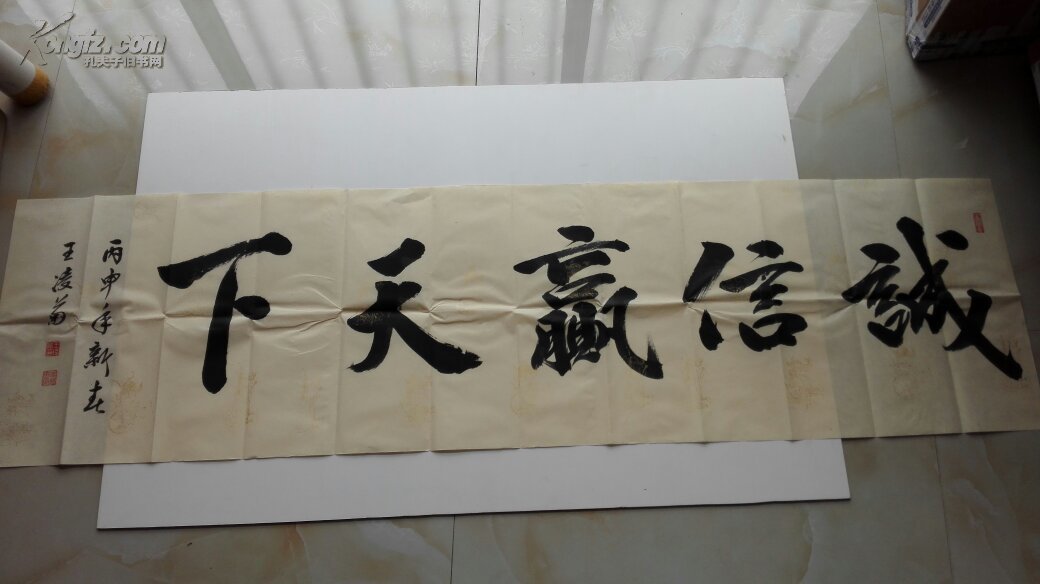 誠信贏天下
丙申年新春
王凌
Kongfz.com
孔夫子旧书网